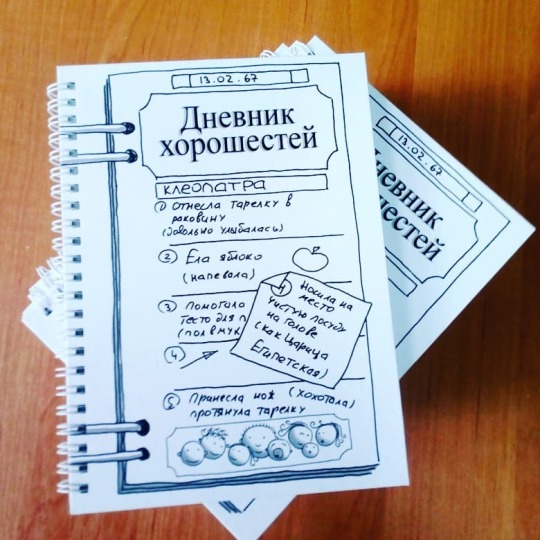 13.02.67
Дневник
хорошестей
КЛЕОПАТРА
① Отнесла тарелку в
раковину
(довольно улыбалась)
② Ела яблоко
(напевала)
③ Помогала
тесто для
④
④ Носила на
место
чистую посуду
на голове
(как Царица
Египетская)
⑤ Принесла нож (хохотала)
протянула тарелку
13.02.67